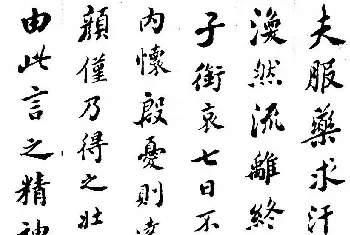 夫服藥求汗
渙然流離終
子銜哀七日不
內懷殷憂則
顏僅乃得之壯
由此言之精神